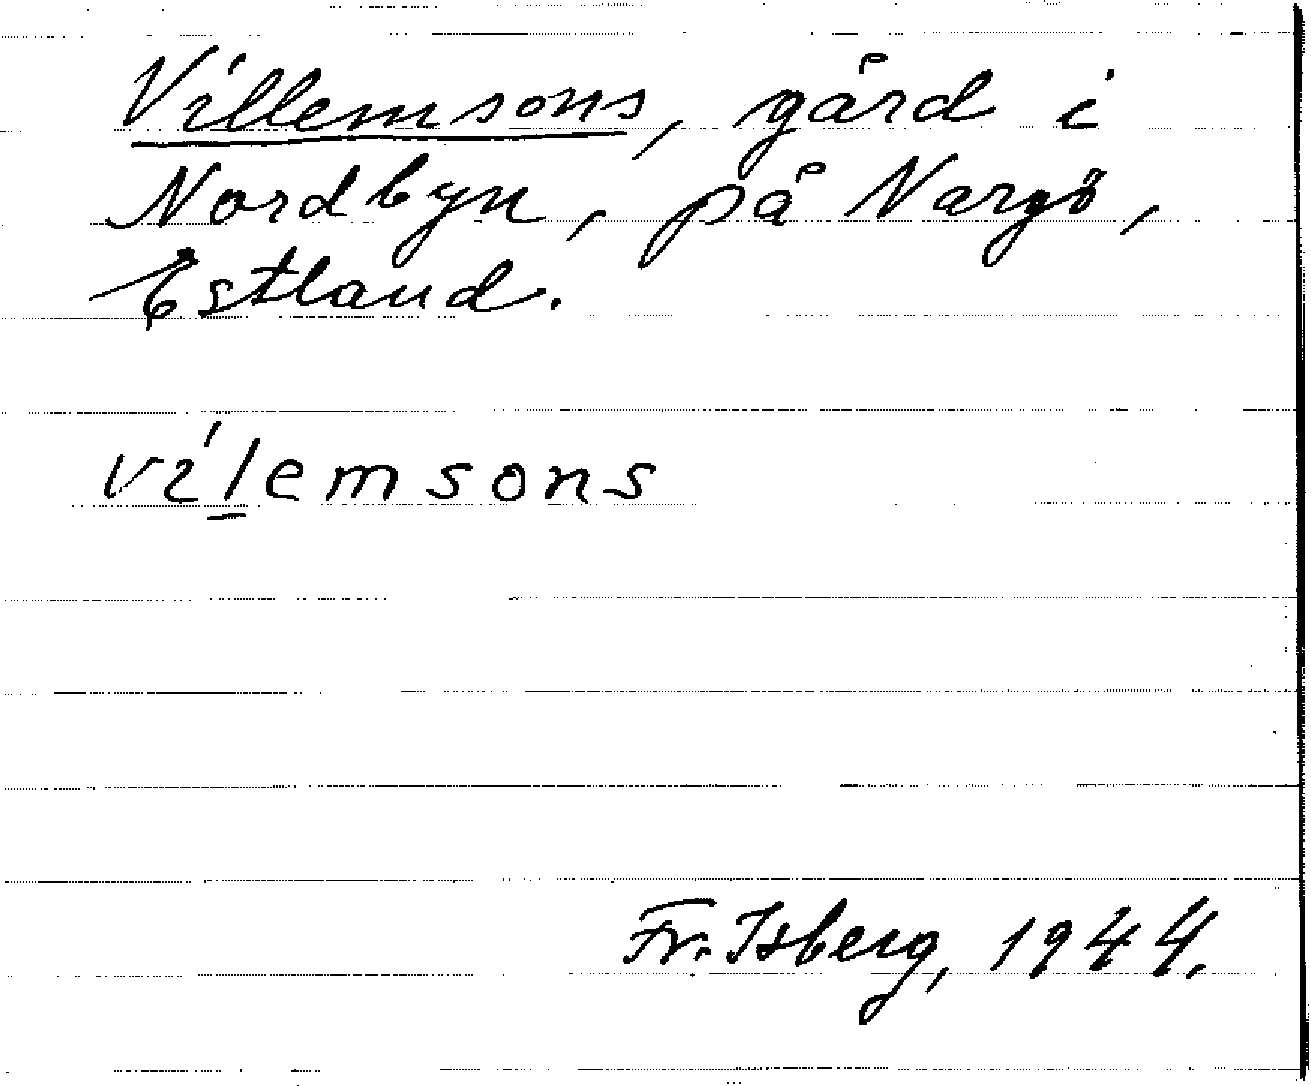 Villemsons, gård i
Nordbyn, på Nargö,
Estland.
vílemsons
Fr. Isberg, 1944.